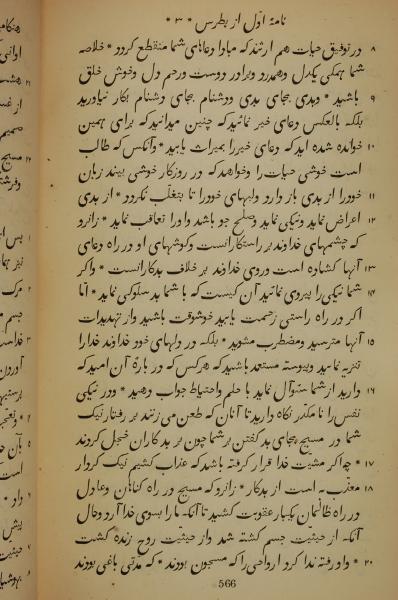 نامهٔ اوّل از بطرس * ۳ *
۸ در توفیق حیات هم ارثند که مبادا دعاهای شما منقطع گردد * خلاصه
شما همگی یکدل وهمدرد وبرادر دوست ورحم دل وخوش خلق
۹ باشید * وبدی بجای بدی ودشنام بجای دشنام بکار نیاورید
بلکه بالعکس دعای خیر نمائید که چنین میدانید که برای همین
۱۰ خوانده شده اید که دعای خیررا بمیراث یابید * وآنکس که طالب
است خوشی حیات را وخواهد که در روزکار خوشی بیند زبان
۱۱ خودرا از بدی باز دارد ولبهای خودرا تا بتغلّب نکردد * از بدی
۱۲ اعراض نماید ونیکی نماید وصلح جو باشد واورا تعاقب نماید * زانرو
که چشمهای خداوند بر راستکارانست وکوشهای او در راه دعای
۱۳ آنها کشاده است وروی خداوند بر خلاف بدکارانست * واکر
۱۴ شما نیکی را پیروی نمائید آن کیست که با شما بد سلوکی نماید * امّا
اکر در راه راستی زحمت یابید خوشوقت باشید واز تهدیدات
۱۵ آنها مترسید ومضطرب مشوید * بلکه در دلهای خود خداوند خدارا
تنزیه نمایید وپیوسته مستعد باشید که هرکس که در بارهٔ آن امیدکه
۱۶ دارید از شما سئوال نماید با حلم واحتیاط جواب دهید * ودر نیکی
نفس را نکاه دارید تا آنان که طعن می زنند بر رفتار نیک
شما در مسیح بجای بد کفتن بر شما چون بر بد کاران خجل کردند
۱۷ * چه اکر مشیّت خدا قرار کرفته باشد که عذاب کشیم نیک کردار
۱۸ معذّب به است از بدکار * زانرو که مسیح در راه کناهان وعادل
در راه ظالمان یکبار عقوبت کشید تا آنکه مارا بسوی خدا آرد وحال
آنکه از حیثیت جسم کشته شد واز حیثیت روح زنده کشت
۲۰ * واو رفته ندا کرد ارواحی را که مسجون بودند * که مدتی باغی بودند
566